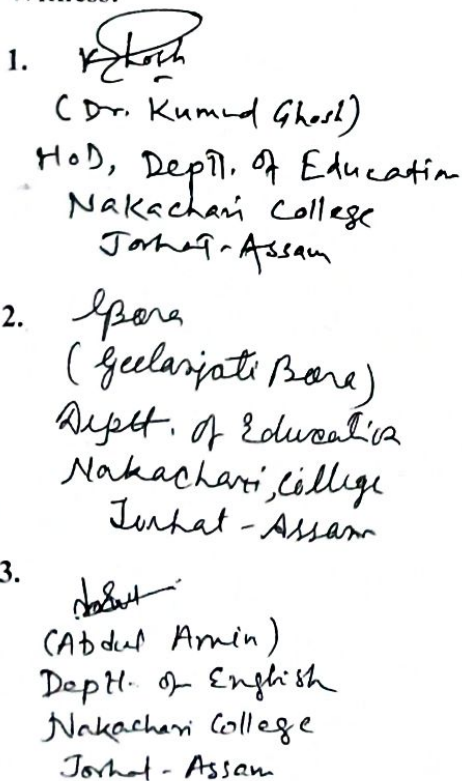 1. KGhosh
(Dr. Kumud Ghosh)
HoD, Deptt. of Education
Nakachari College
Jorhat-Assam
2. GBora
(Geetanjali Bora)
Deptt. of Education
Nakachari, College
Jorhat - Assam
3.
(Abdul Amin)
Deptt. of English
Nakachari College
Jorhat - Assam